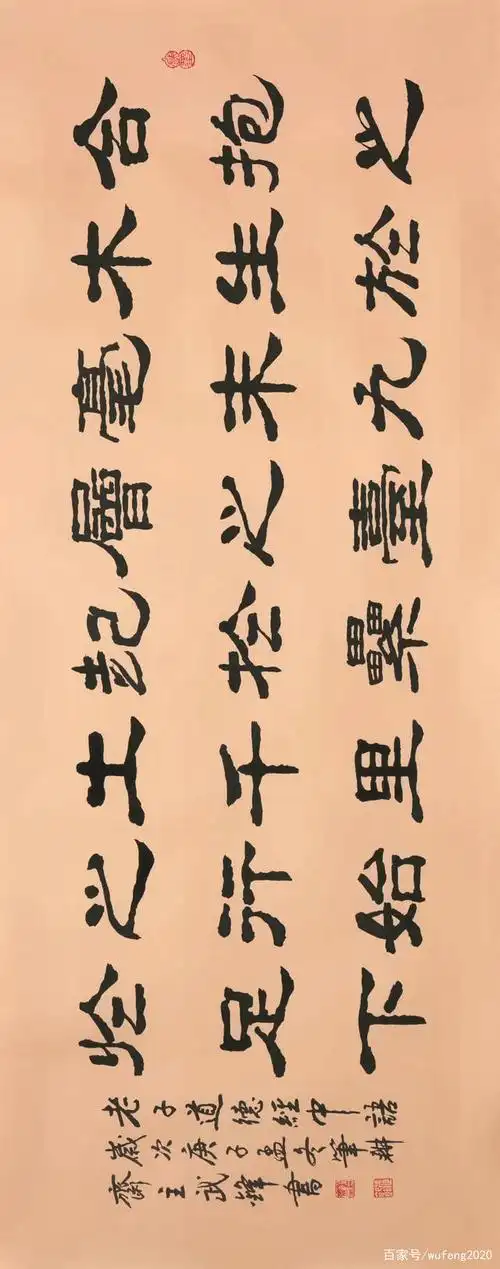 合抱之
木生於
毫末九
層之臺
起於累
土千里
之行始
於足下
老子道德經中語
歲次庚子孟冬筆耕
齋主武鋒書
百家号/wufeng2020